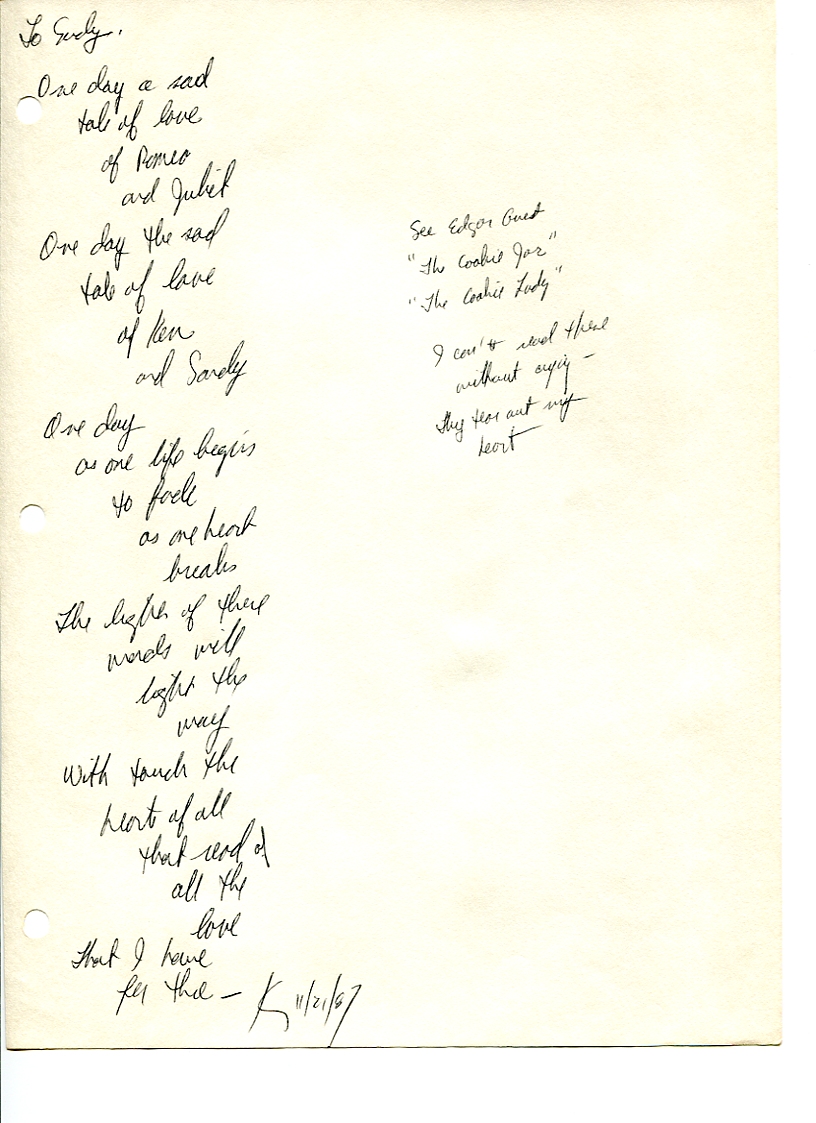 To Sandy.
One day a sad
tale of love
of Romeo
and Juliet
One day the sad
tale of love
of Ken
and Sandy
One day
as one life begins
to fade
as one heart
breaks
The light of these
words will
light the
way
With touch the
heart of all
that read of
all the
love
That I have
for thee —
K 11/21/87
See Edgar Guest
"The Cookie Jar"
"The Cookie Lady"
I can't read these
without crying –
They tear out my
heart